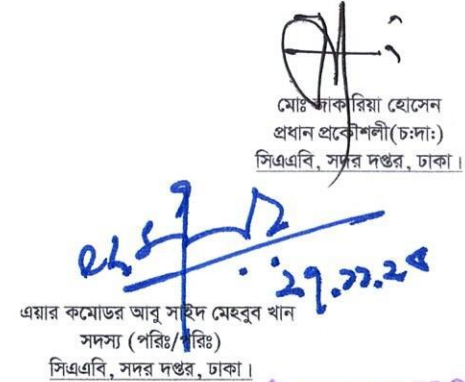 মোঃ জাকারিয়া হোসেন
প্রধান প্রকৌশলী(চ:দা:)
সিএএবি, সদর দপ্তর, ঢাকা।
এয়ার কমোডর আবু সাইদ মেহবুব খান
সদস্য (পরিঃ/পরিঃ)
সিএএবি, সদর দপ্তর, ঢাকা।